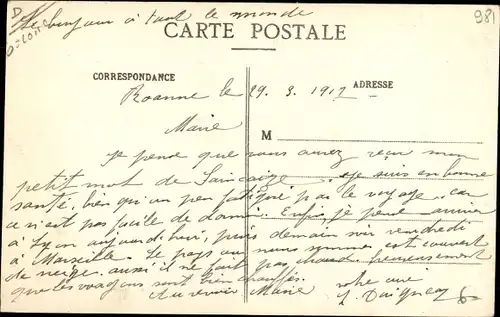 Le bonjour à tout le monde
981
CARTE POSTALE
CORRESPONDANCE
ADRESSE
Roanne le 29. 3. 1917
M
Marie
Je pense que vous aurez reçu mon
petit mot de Saincaize. Je suis en bonne
santé, bien qu'un peu fatigué par le voyage, car
ce n'est pas facile de dormir. Enfin, je pense arriver
à Lyon aujourd'hui, puis demain soir vendredi
à Marseille. Le pays où nous sommes est couvert
de neige. aussi il ne fait pas chaud. heureusement
que les wagons sont bien chauffés.
Au revoir Marie votre ami